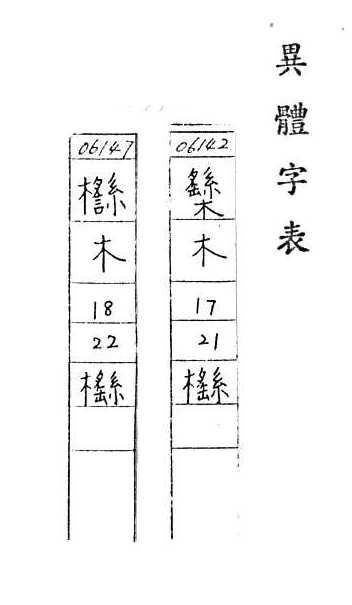 異體字表
06142
木
17
21
櫾
06147
木
18
22
櫾